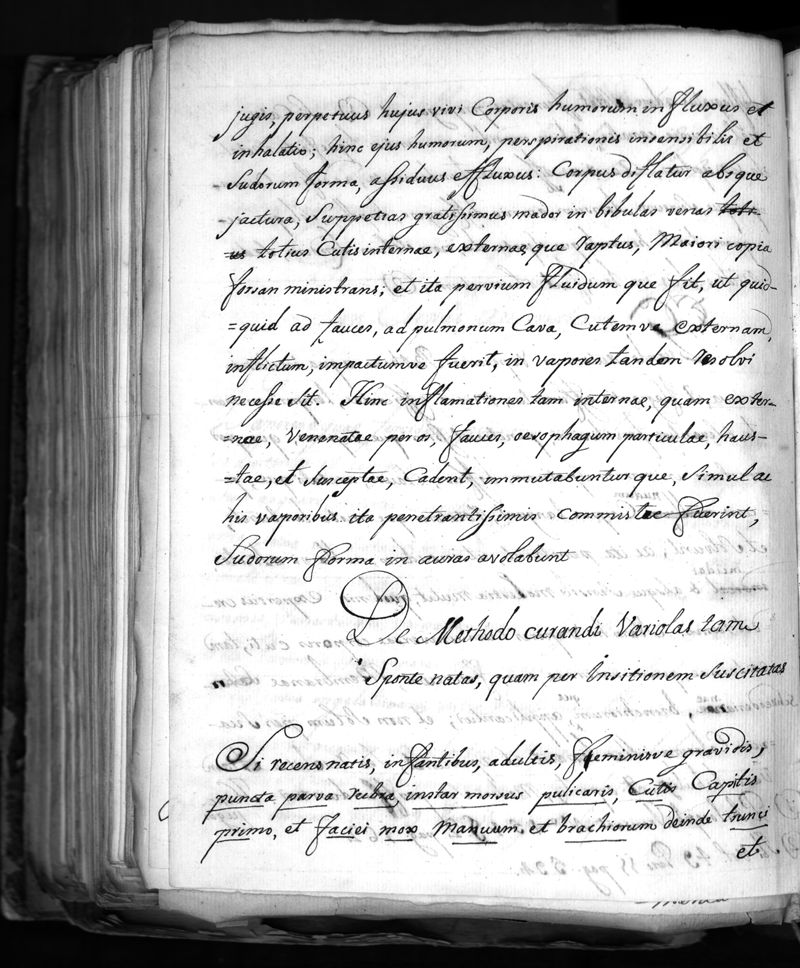 jugis, perpetuus hujus vivi Corporis humorum influxus et
inhalatio; hinc ejus humorum, perspirationis insensibilis et
Sudorum forma, assiduus effluxus: Corpus diflatur absque
jactura, Suppetias gratissimus mador in bibulas venas
totius Cutis internae, externaeque raptus, Maiori copia
forsan ministrans; et ita pervium fluidumque fit, ut quid-
=quid ad fauces, ad pulmonum Cava, Cutemve externam,
inflictum, impactumve fuerit, in vapores tandem resolvi
necesse sit. Hinc inflamationes tam internae, quam exter-
=nae, Venenatae per os, fauces, oesophagum particulae, haus-
=tae, et Susceptae, Cadent, immutabunturque, Simul ac
his vaporibus ita penetrantissimis commistae fuerint,
Sudorum forma in auras avolabunt
De Methodo curandi Variolas tam
Sponte natas, quam per Insitionem Suscitatas
Si recens natis, infantibus, adultis, foeminisve gravidis,
puncta parva rubra, instar morsus pulicaris, Cutis Capitis
primo, et faciei mox Manuum et brachiorum deinde trunci
et